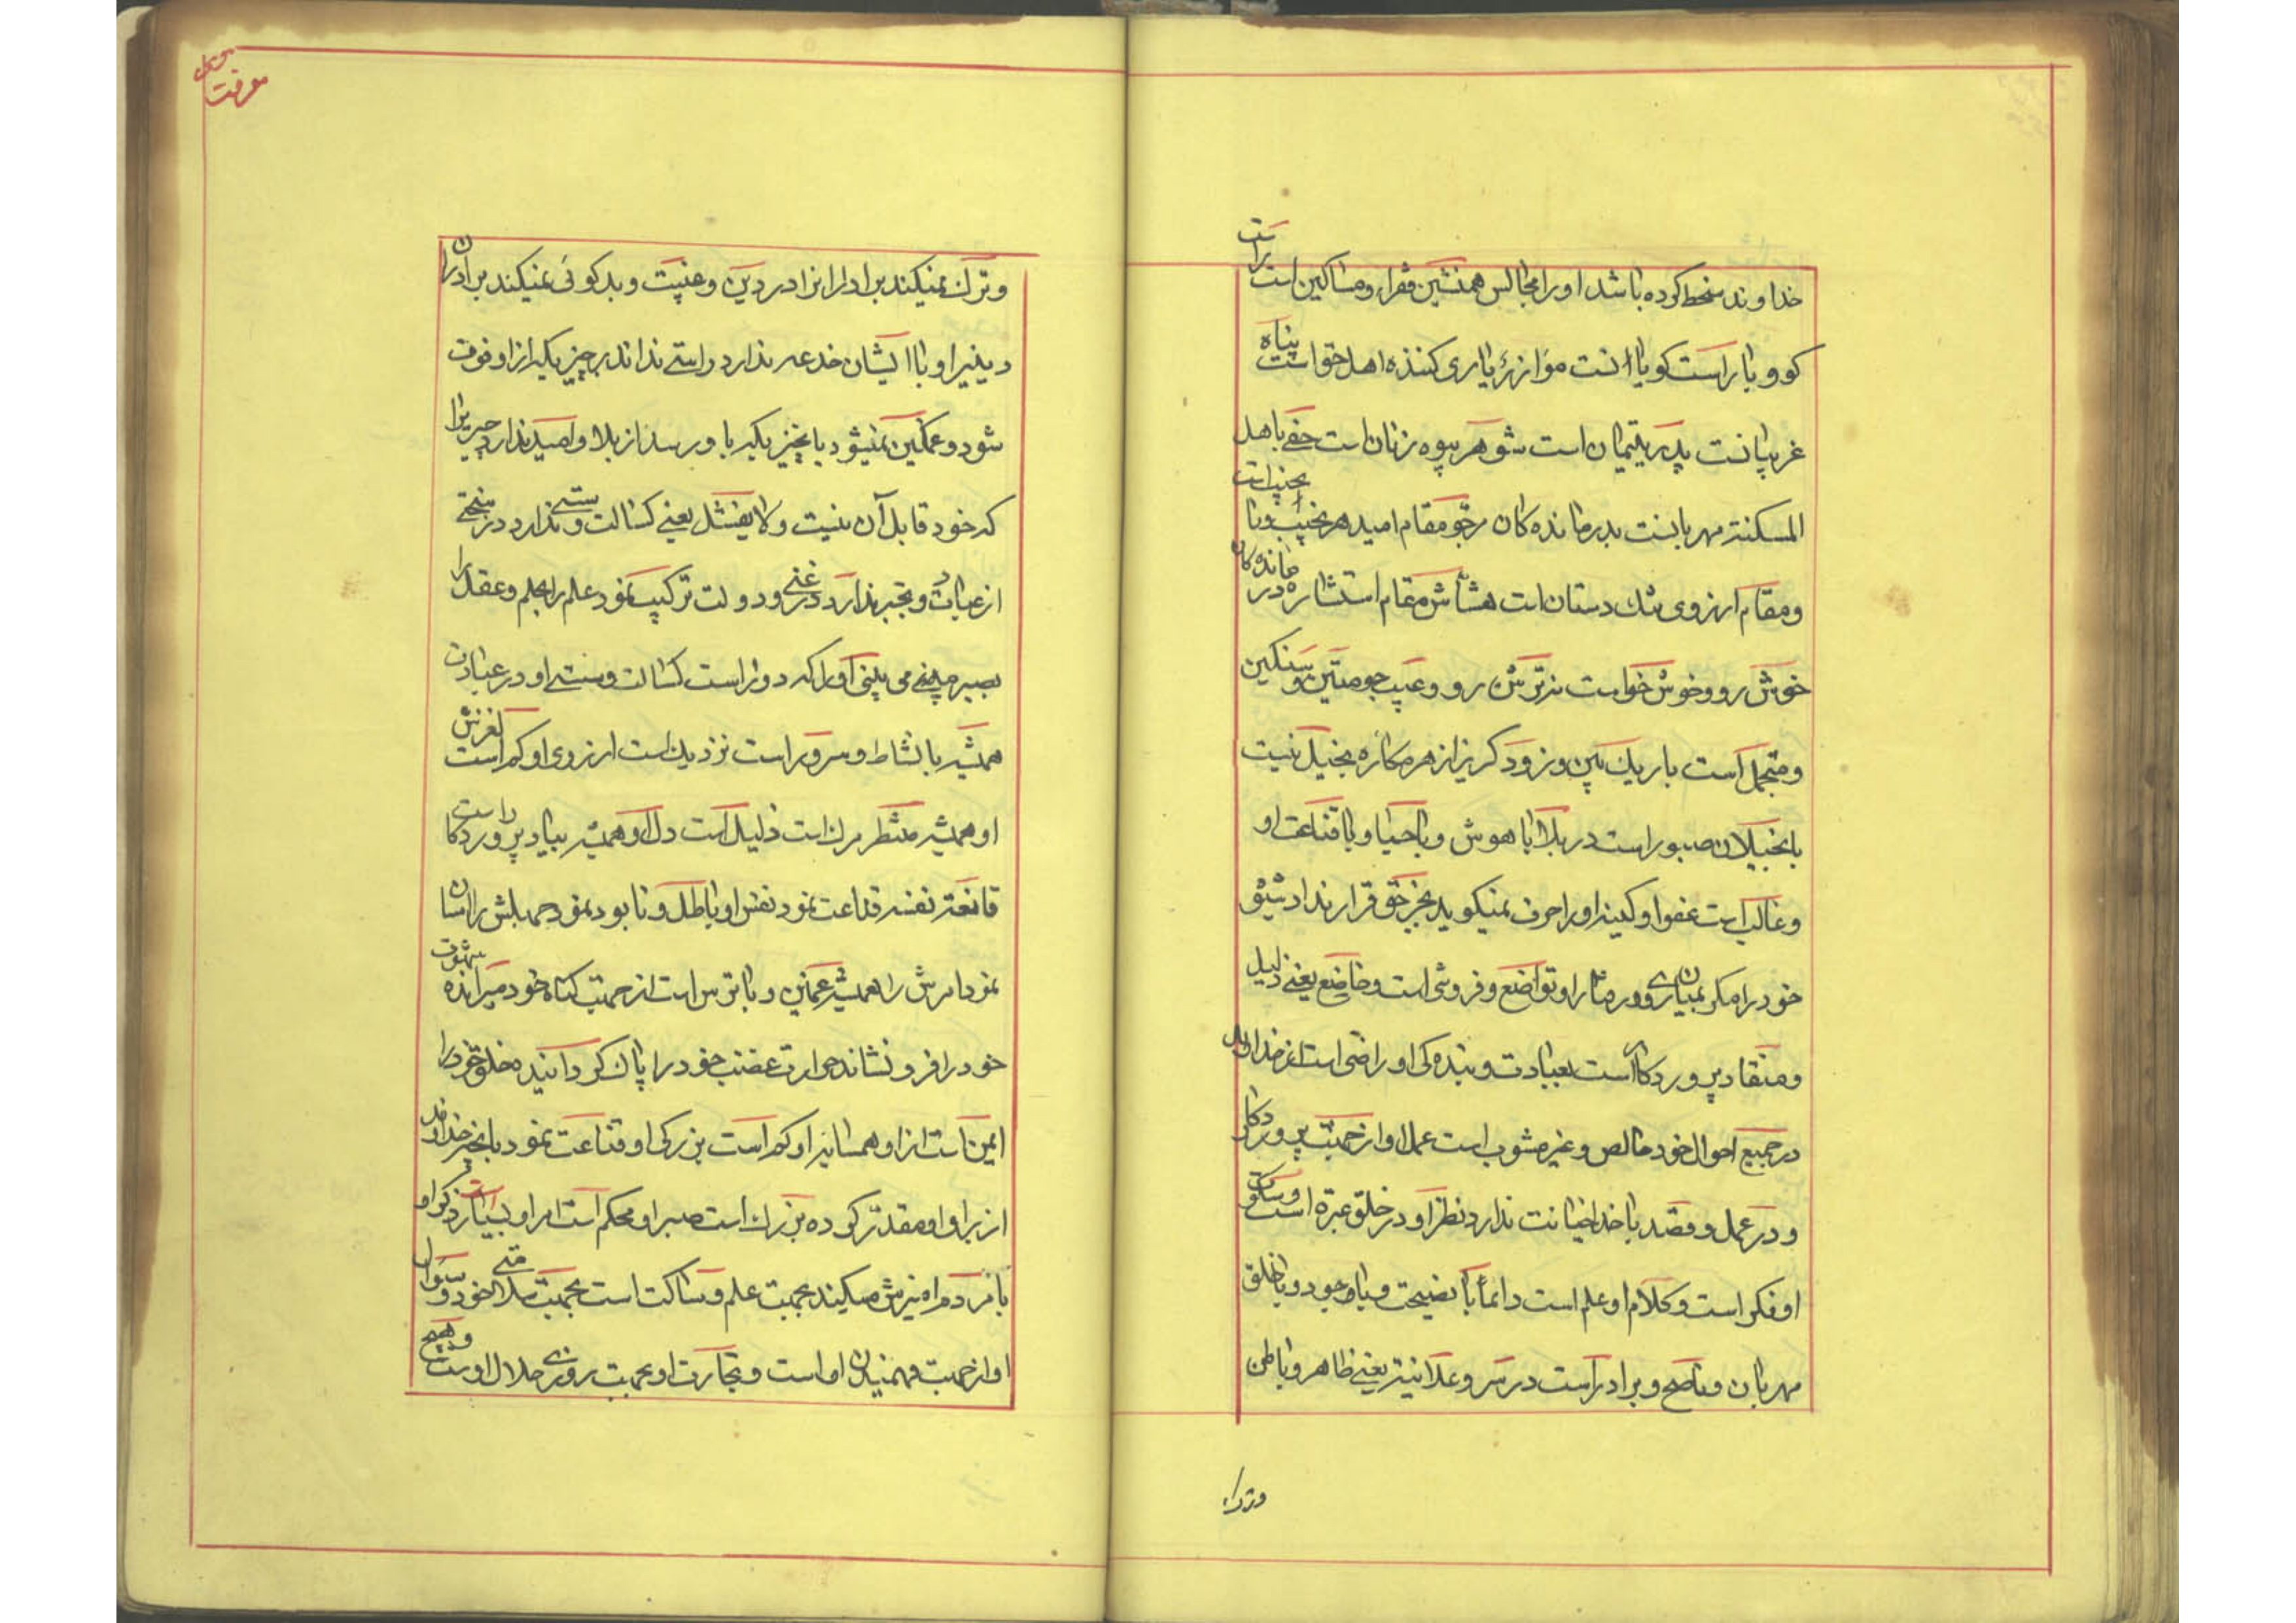 خداوند سخط کرده باشد او را مجالس همنشین فقراء و مساکین است براست
کو و یار است کویا انت مواززۀ یاری کننذه اهل حق است پناه
غریبانست پدر یتیمان است شوهر بیوه زنان است حفی باهل
المسکنة مهربانست بدرمانده کان مرجو مقام امید هر
و مقام ارزوی تنك دستان است هشّاش مقام استشاره درمانده کان
خوش رو و خوش خو است نه ترش رو و عیب جو متین و سنکین
و متجمل است باریك بین و زود کریز از هر مکاره بخیل نیست
با بخیلان صبور است در بلا با هوش و با حیا و با قناعت او
و غالب است عفو او کینه او را حرف نمیکوید بجز حق قرار نداد شیئی
خود را مکر او تواضع و فروشی است و خاضع یعنی ذلیل
و منقاد پرورد کار است بعبادت و بنده کی او راضی است از خداوند
در جمیع احوال خود خالص و غیر مشوب است عمل او از جهت پرورد کار
و در عمل و قصد با خدا خیانت ندارد نظر او در خلق عبرة است و سکوت
او فکر است و کلام او علم است دائما با نصیحت و با وجود و با خلق
مهربان و ناصح و برادر است در سر و علانیة یعنی ظاهر و باطن
و ترك
معرفت
و ترك نمیکند برادرانرا در دین و غیبت و بدکوئی نمیکند برادران
دینی او با ایشان خدعه ندارد و استی نداند بر چیزیکه از او فوت
شود و غمکین نمیشود بانچیزیکه باو رسد از بلا و امید ندارد چیزیرا
که خود قابل آن نیست و لا یفشل یعنی کسالت و سستی ندارد در سختی
از عبادت و تجبر ندارد در غنی و دولت ترکیب نمود علم را بحلم و عقل را
بصبر می بینی او را که دور است کسالت و سستی او در عبادت
همیشه با نشاط و سرور است نزدیك است ارزوی او کم است لغزش
او همیشه منتظر مرك است ذلیل است دل او همیشه بیاد پروردکار است
قانعة نفسه قناعت نمود نفس او باطل و نابود نمود جهلش را اسان
نمود امرش را همیشه غمکین و با ترس است از جهت کناه خود میرانده شهوت
خود را فرو نشانده حرارت غضب خود را پاك کردانیده خلق خود را
ایمن است از او همسایه او کم است بزرکی او قناعت نمود بانچه خداوند
از برای او مقدر کرده بزرك است صبر او محکم است امر او بسیار است ذکر او
با مردم امیزش میکند بجهت علم و ساکت است بجهت سلامتی خود و سؤال
او از جهت فهمیدن او است و تجارت او بجهت روزی حلال اوست و هیچ